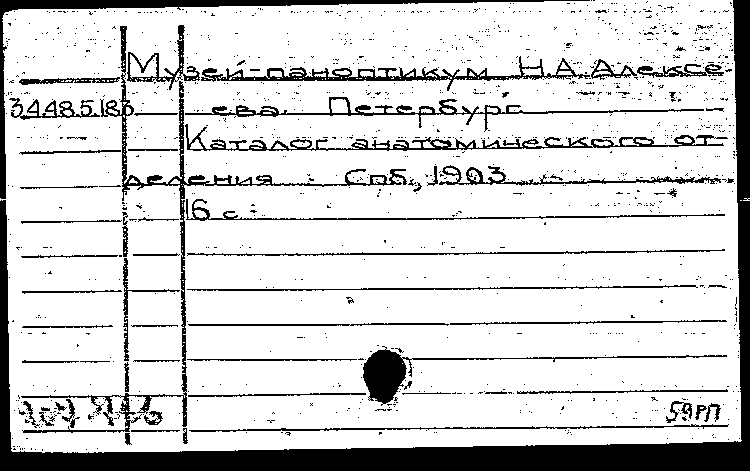 Музей-паноптикум Н.А.Алексе-
34.48.5.183 ева. Петербург.
Каталог анатомического от-
деления. Спб, 1903
16 с.
59РП